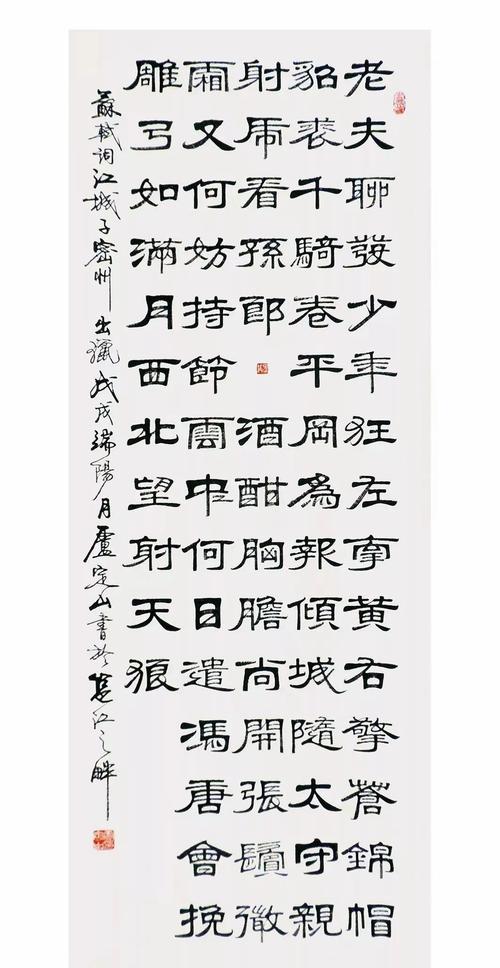 老夫聊發少年狂左牽黃右擎蒼錦帽
貂裘千騎卷平岡為報傾城隨太守親
射虎看孫郎酒酣胸膽尚開張鬢微
霜又何妨持節雲中何日遣馮唐會挽
雕弓如滿月西北望射天狼
蘇軾詞江城子密州出獵戊戌端陽月盧定山書於江之畔